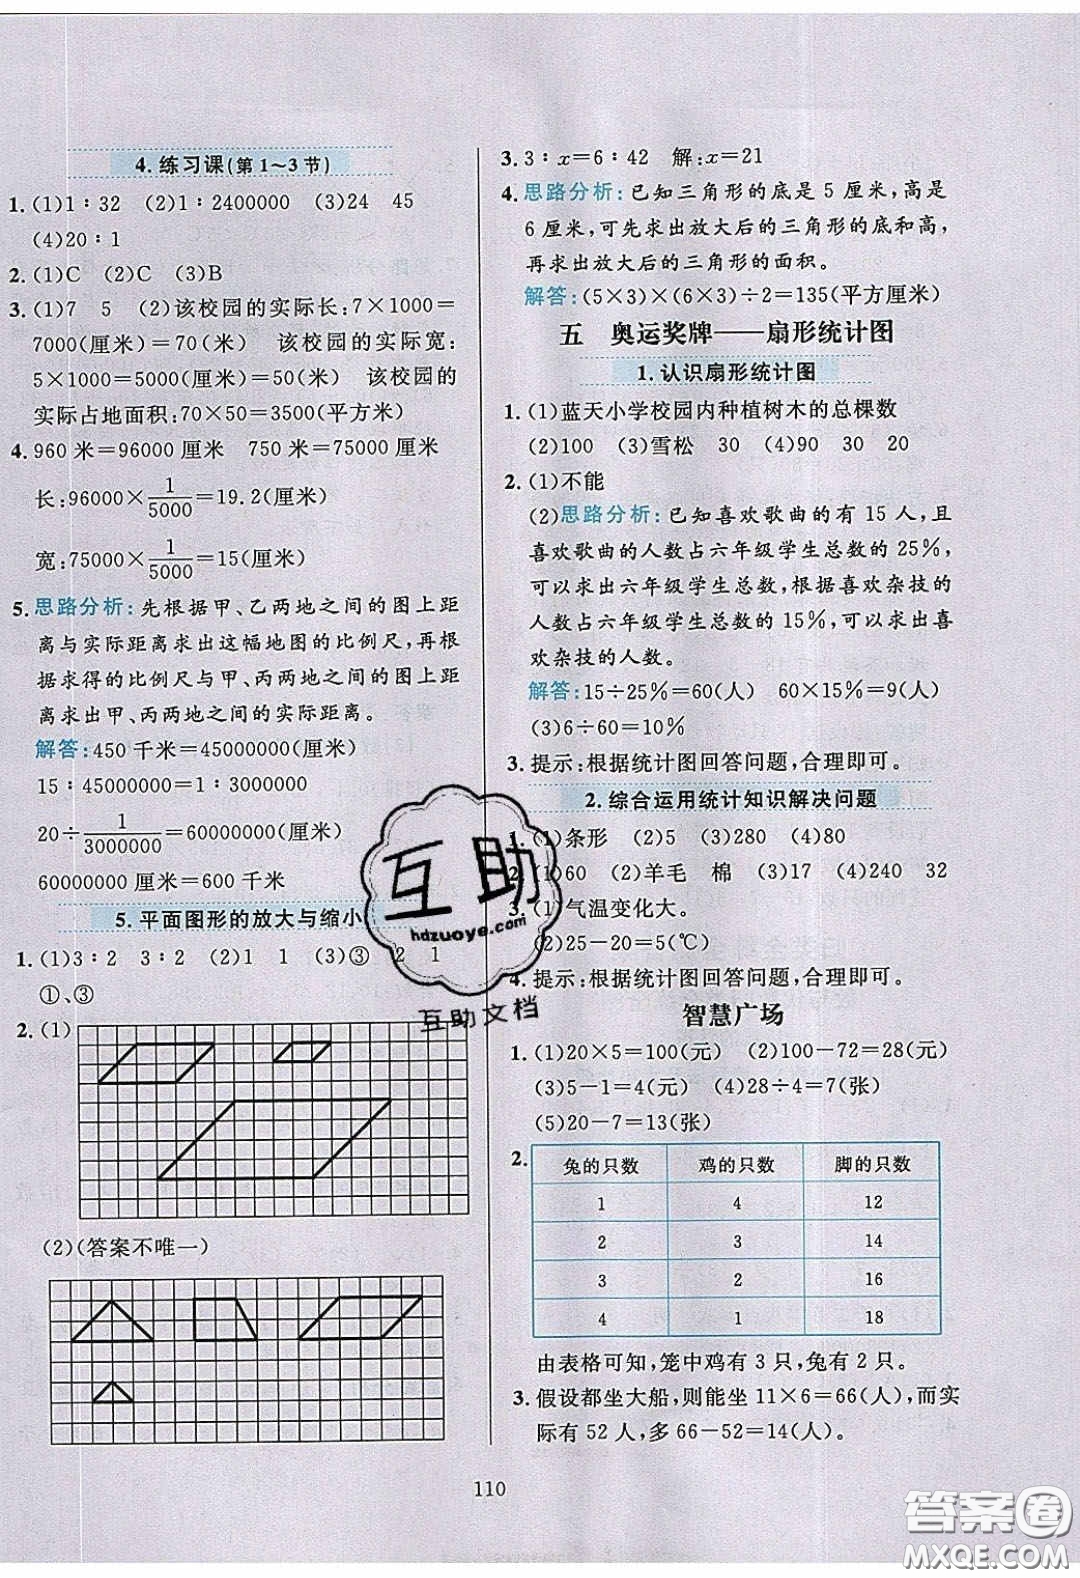 4.练习课(第1～3节)
1.(1)1∶32 (2)1∶2400000 (3)24 45
(4)20∶1
2.(1)C (2)C (3)B
3.(1)7 5 (2)该校园的实际长:7×1000=
7000(厘米)=70(米) 该校园的实际宽:
5×1000=5000(厘米)=50(米) 该校园的
实际占地面积:70×50=3500(平方米)
4.960米=96000厘米 750米=75000厘米
长:96000×1/5000=19.2(厘米)
宽:75000×1/5000=15(厘米)
5.思路分析:先根据甲、乙两地之间的图上距
离与实际距离求出这幅地图的比例尺,再根
据求得的比例尺与甲、丙两地之间的图上距
离求出甲、丙两地之间的实际距离。
解答:450千米=45000000(厘米)
15∶45000000=1∶3000000
20÷1/3000000=60000000(厘米)
60000000厘米=600千米
5.平面图形的放大与缩小
1.(1)3∶2 3∶2 (2)1 1 (3)③ 2 1
①、③
2.(1)
(2)(答案不唯一)
3.3∶x=6∶42 解:x=21
4.思路分析:已知三角形的底是5厘米,高是
6厘米,可先求出放大后的三角形的底和高,
再求出放大后的三角形的面积。
解答:(5×3)×(6×3)÷2=135(平方厘米)
五 奥运奖牌——扇形统计图
1.认识扇形统计图
1.(1)蓝天小学校园内种植树木的总棵数
(2)100 (3)雪松 30 (4)90 30 20
2.(1)不能
(2)思路分析:已知喜欢歌曲的有15人,且
喜欢歌曲的人数占六年级学生总数的25%,
可以求出六年级学生总数,根据喜欢杂技的
人数占六年级学生总数的15%,可以求出喜
欢杂技的人数。
解答:15÷25%=60(人) 60×15%=9(人)
(3)6÷60=10%
3.提示:根据统计图回答问题,合理即可。
2.综合运用统计知识解决问题
1.(1)条形 (2)5 (3)280 (4)80
2.(1)60 (2)羊毛 棉 (3)17 (4)240 32
3.(1)气温变化大。
(2)25-20=5(℃)
4.提示:根据统计图回答问题,合理即可。
智慧广场
1.(1)20×5=100(元) (2)100-72=28(元)
(3)5-1=4(元) (4)28÷4=7(张)
(5)20-7=13(张)
2.
兔的只数 鸡的只数 脚的只数
1 4 12
2 3 14
3 2 16
4 1 18
由表格可知,笼中鸡有3只,兔有2只。
3.假设都坐大船,则能坐11×6=66(人),而实
际有52人,多66-52=14(人)。
110
互助
hdzuoye.com
互助文档
答案圈
MXQE.COM